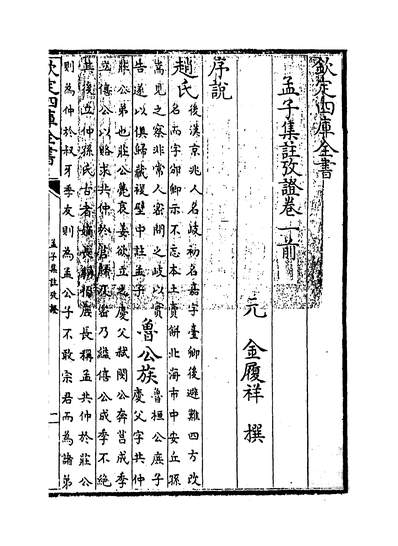 欽定四庫全書
孟子集註攷證卷一前
元 金履祥 撰
序說
趙氏
後漢京兆人名岐初名嘉字臺卿後避難四方改
名而字邠卿示不忘本土賣餅北海市中安丘孫
嵩見之察非常人密問之岐以實
告遂以俱歸藏複壁中註孟子
魯公族
魯桓公庶子
慶父字共仲
莊公弟也莊公薨哀姜欲立之慶父弑閔公奔莒成季
立僖公以賂求共仲於莒歸及密乃縊僖公成季不絶
其後立仲孫氏古者嫡長稱伯庶長稱孟共仲於莊公
則為仲於叔牙季友則為孟公子不敢宗君而為諸弟
欽定四庫全書
孟子集註攷證
一